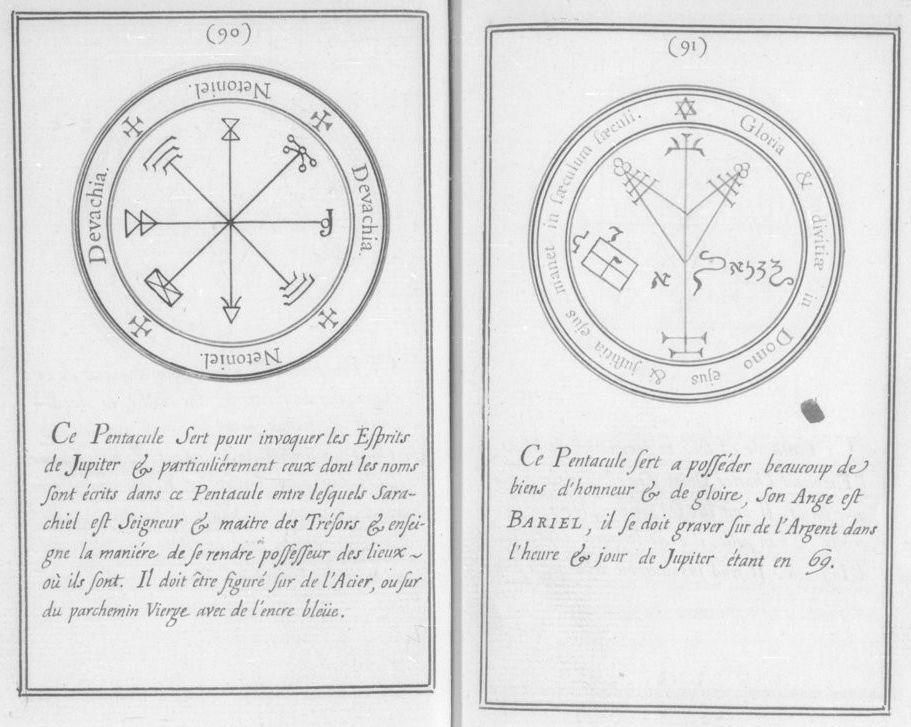 (90)
Netoniel.
Devachia.
Netoniel.
Devachia.
Ce Pentacule Sert pour invoquer les Esprits
de Jupiter & particuliérement ceux dont les noms
sont écrits dans ce Pentacule entre lesquels Sara-
chiel est Seigneur & maitre des Trésors & ensei-
gne la maniére de se rendre possesseur des lieux ~
où ils sont. Il doit être figuré sur de l'Acier, ou sur
du parchemin Vierge avec de l'encre bleüe.
(91)
Gloria & divitiæ in Domo ejus & justitia ejus manet in sæculum sæculi.
Ce Pentacule sert a posséder beaucoup de
biens d'honneur & de gloire, Son Ange est
BARIEL, il se doit graver sur de l'Argent dans
l'heure & jour de Jupiter étant en 69.